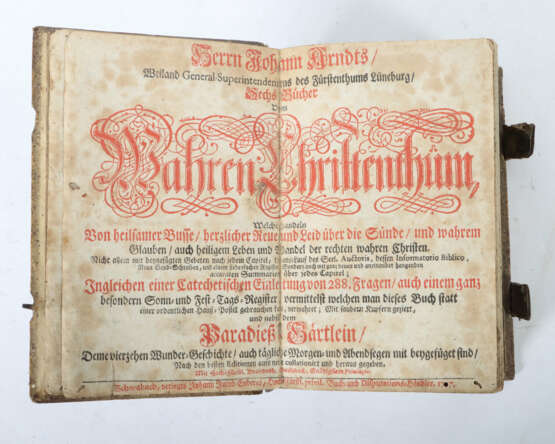 Herrn Johann Arndts/
Weiland General-Superintendentens des Fürstenthums Lüneburg/
Sechs Bücher
Vom
Wahren Christenthum,
Welche handeln
Von heilsamer Busse/ hertzlicher Reue und Leid über die Sünde/ und wahrem
Glauben/ auch heiligem Leben und Wandel der rechten wahren Christen.
Nicht allein mit beygefügten Gebeten nach jedem Capitel, des Seel. Auctoris, dessen Informatorio Biblico,
accuraten Summarien über jedes Capitel;
Ingleichen einer Catechetischen Einleitung von 288. Fragen/ auch einem ganz
besondern Sonn- und Fest-Tags-Register/ vermittelst welchen man dieses Buch statt
einer ordentlichen Hauß-Postill gebrauchen kan, vermehret; Mit saubern Kupfern gezieret,
und nebst dem
Paradieß-Gärtlein/
Deme vierzehen Wunder-Geschichte/ auch tägliche Morgen- und Abendsegen mit beygefüget sind/
Nach den besten Editionen aufs neue collationirt und heraus gegeben.
Schwabach, verlegts Johann Jacob Enderes, Buch- und